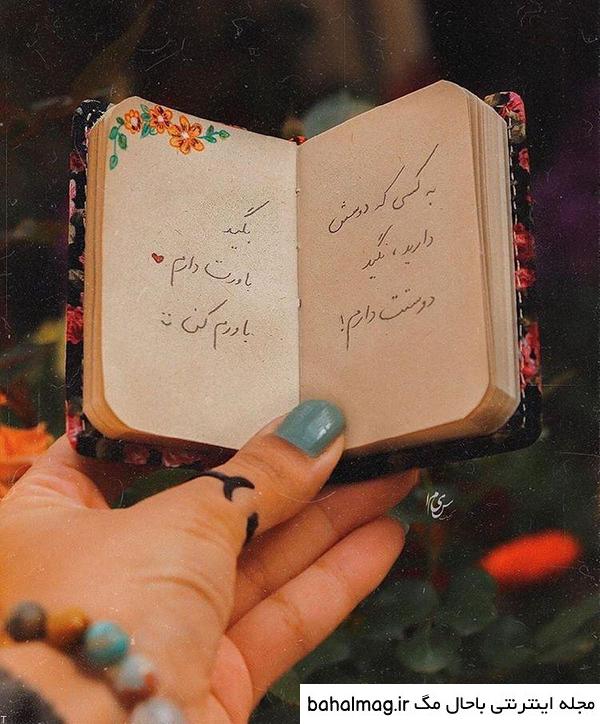 به کسی که دوسش
دارید ، نگید
دوستت دارم!
بگید
باورت دارم
باورم کن
مجله اینترنتی باحال مگ bahalmag.ir